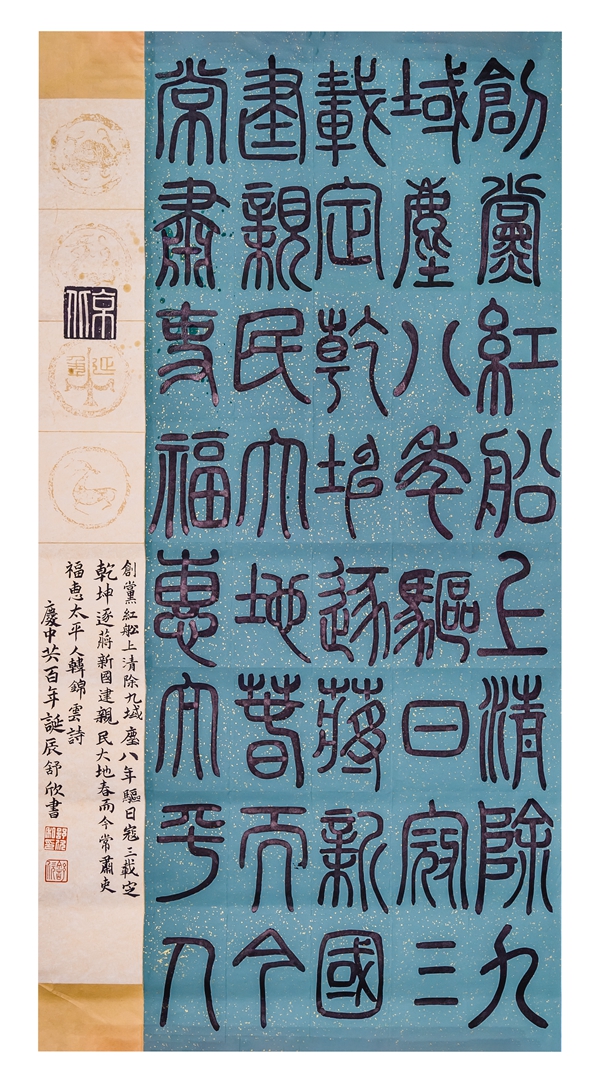 創黨紅船上清除九
域塵八年驅日寇三
載定乾坤逐蔣新國
建親民大地春而今
常肅吏福惠太平人
創黨紅船上清除九域塵八年驅日寇三載定
乾坤逐蔣新國建親民大地春而今常肅吏
福惠太平人韓錦雲詩
慶中共百年誕辰舒欣書